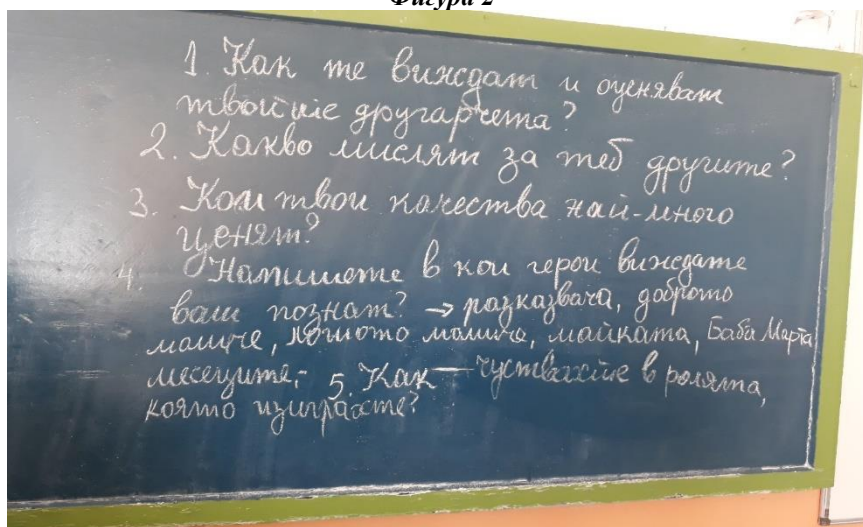 Фигура 2
1. Как те виждат и оценяват
твоите другарчета?
2. Какво мислят за теб другите?
3. Кои твои качества най-много
ценят?
4. Напишете в кои герои виждате
ваш познат? → разказвача, доброто
момиче, лошото момиче, майката, Баба Марта
месеците,- 5. Как — чуствахте в ролята,
която изиграхте?